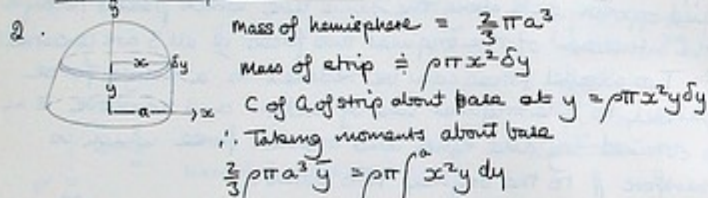 2. mass of hemisphere = 2/3 πa³
y
x δy
mass of strip ≏ ρπx²δy
y
a x
C of G of strip about base at y = ρπx²yδy
∴ Taking moments about base
2/3 ρπa³ȳ = ρπ∫ᵃ x²y dy